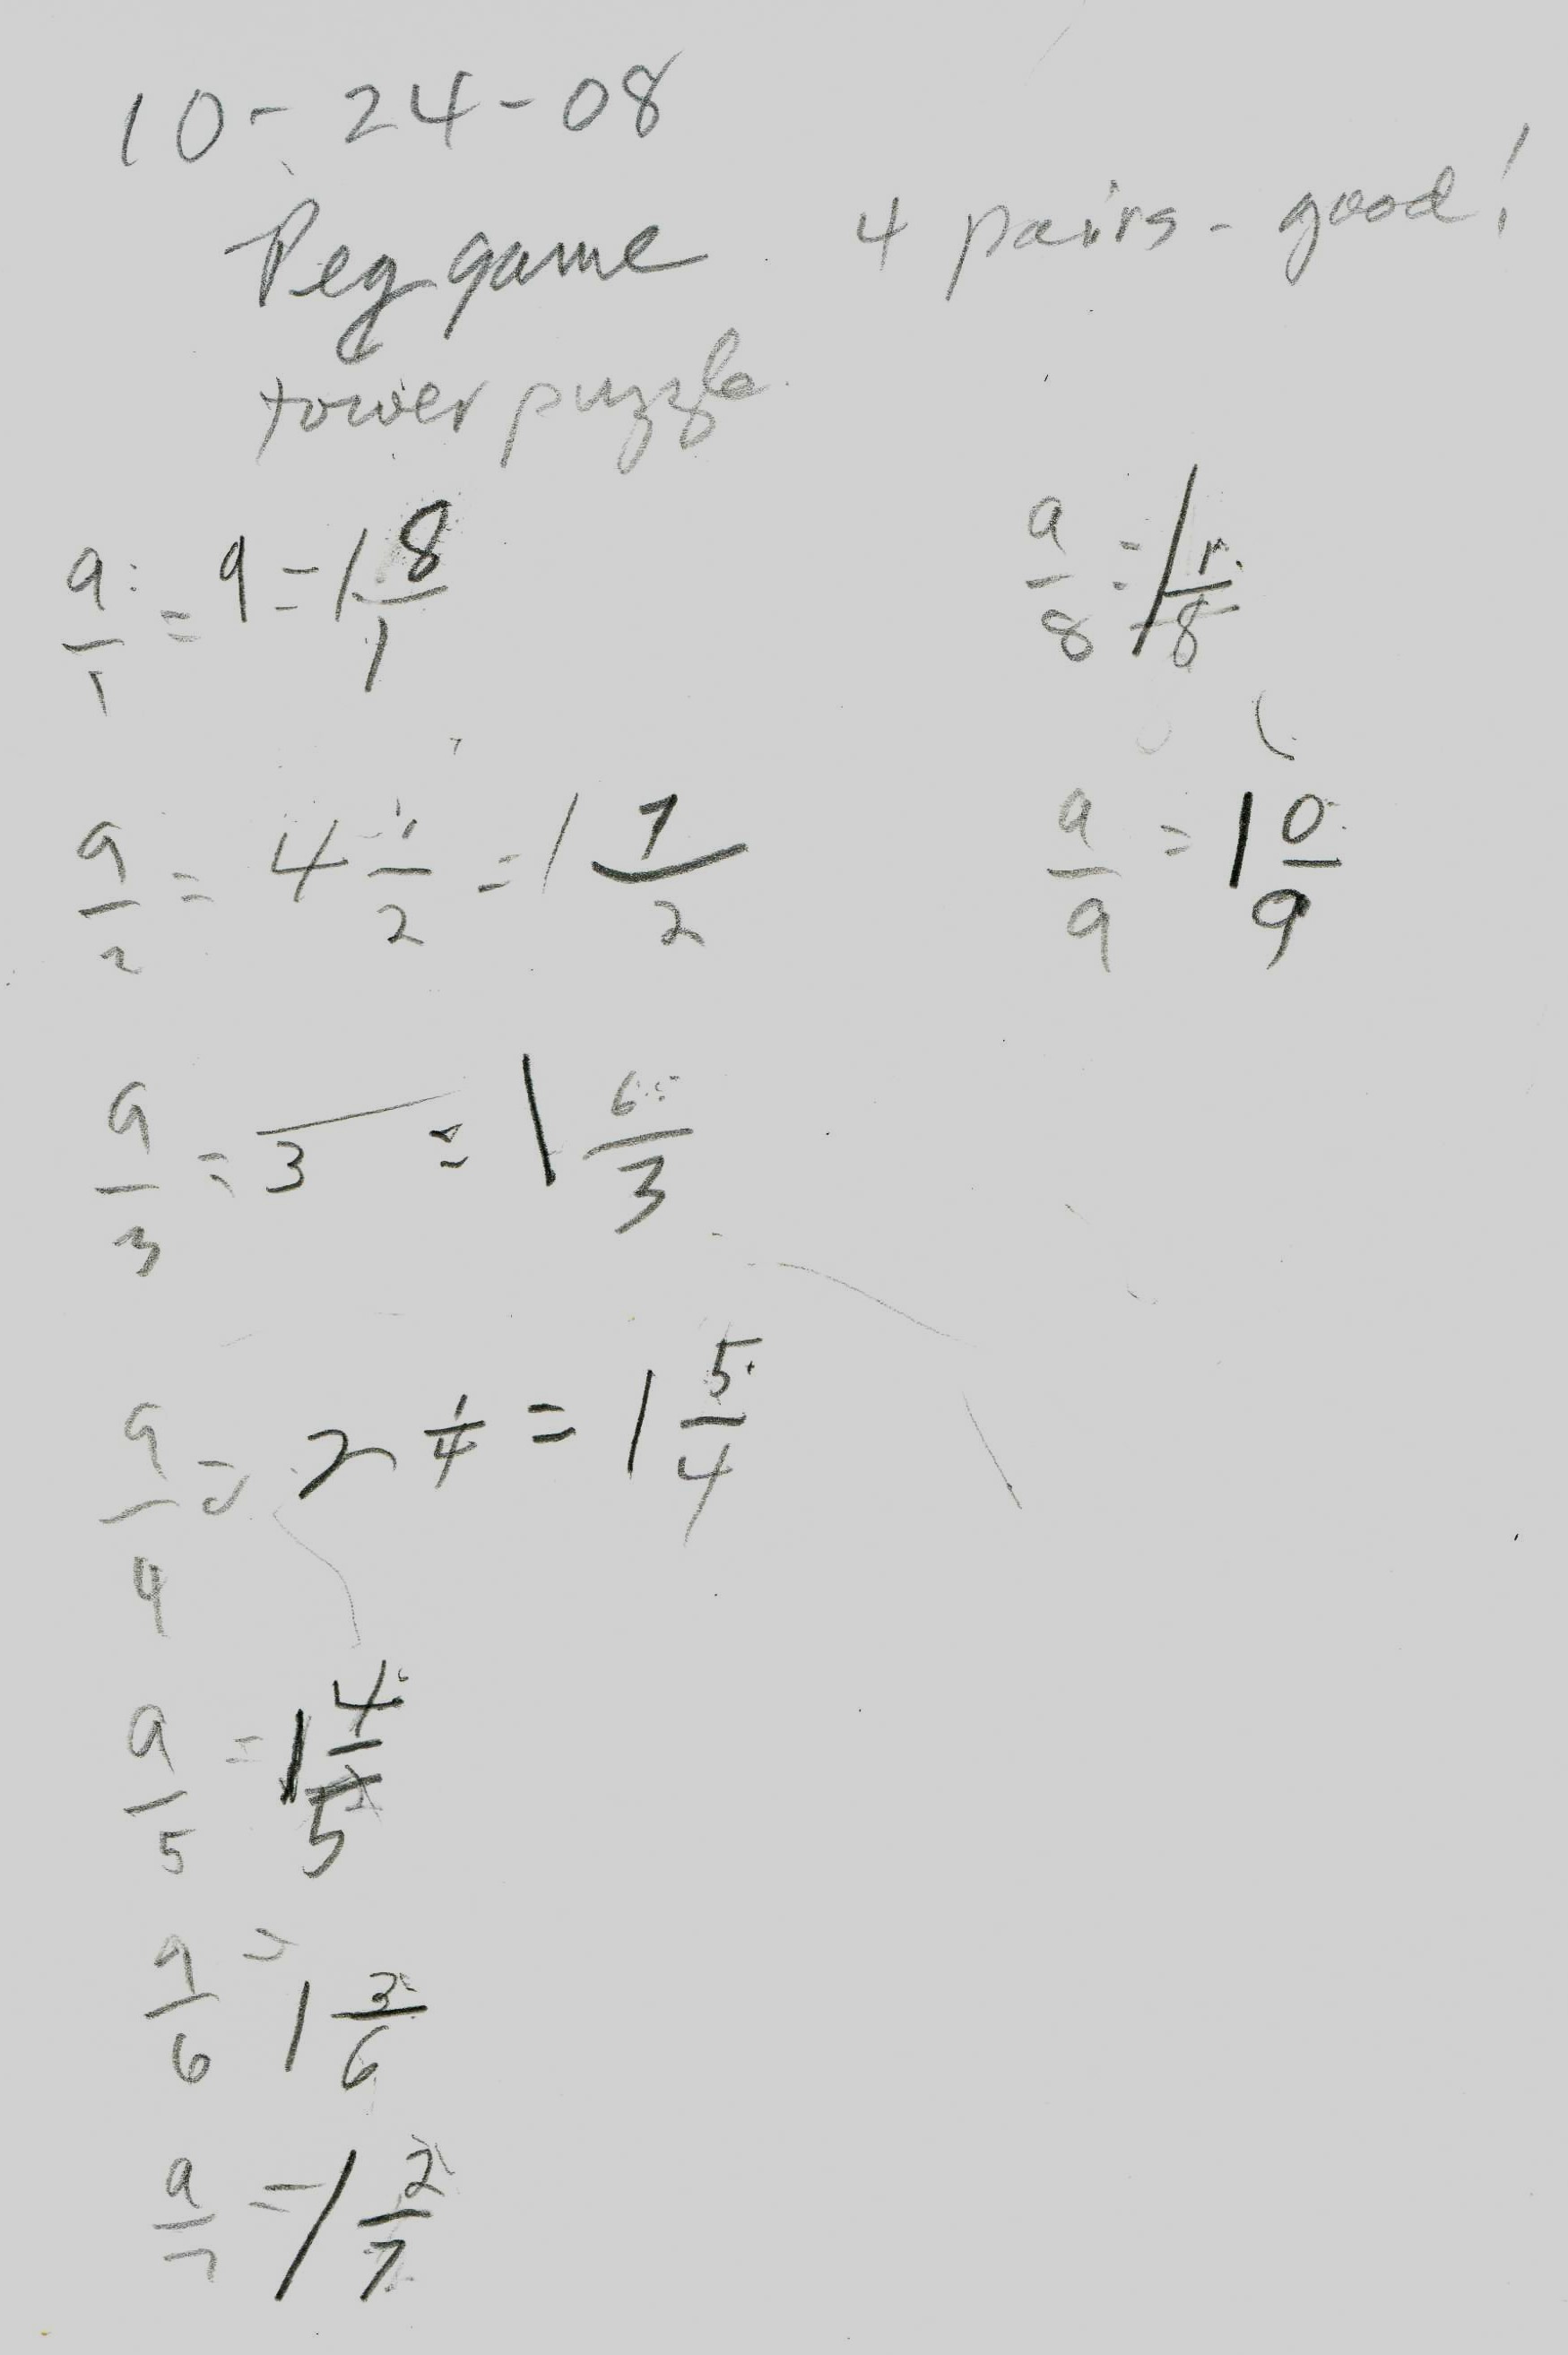 10-24-08
Peg game 4 pairs - good!
tower puzzle
9/1 = 9 = 1 8/1
9/2 = 4 1/2 = 1 7/2
9/3 = 3 = 1 6/3
9/4 = 2 1/4 = 1 5/4
9/5 = 1 4/5
9/6 = 1 3/6
9/7 = 1 2/7
9/8 = 1 1/8
9/9 = 1 0/9